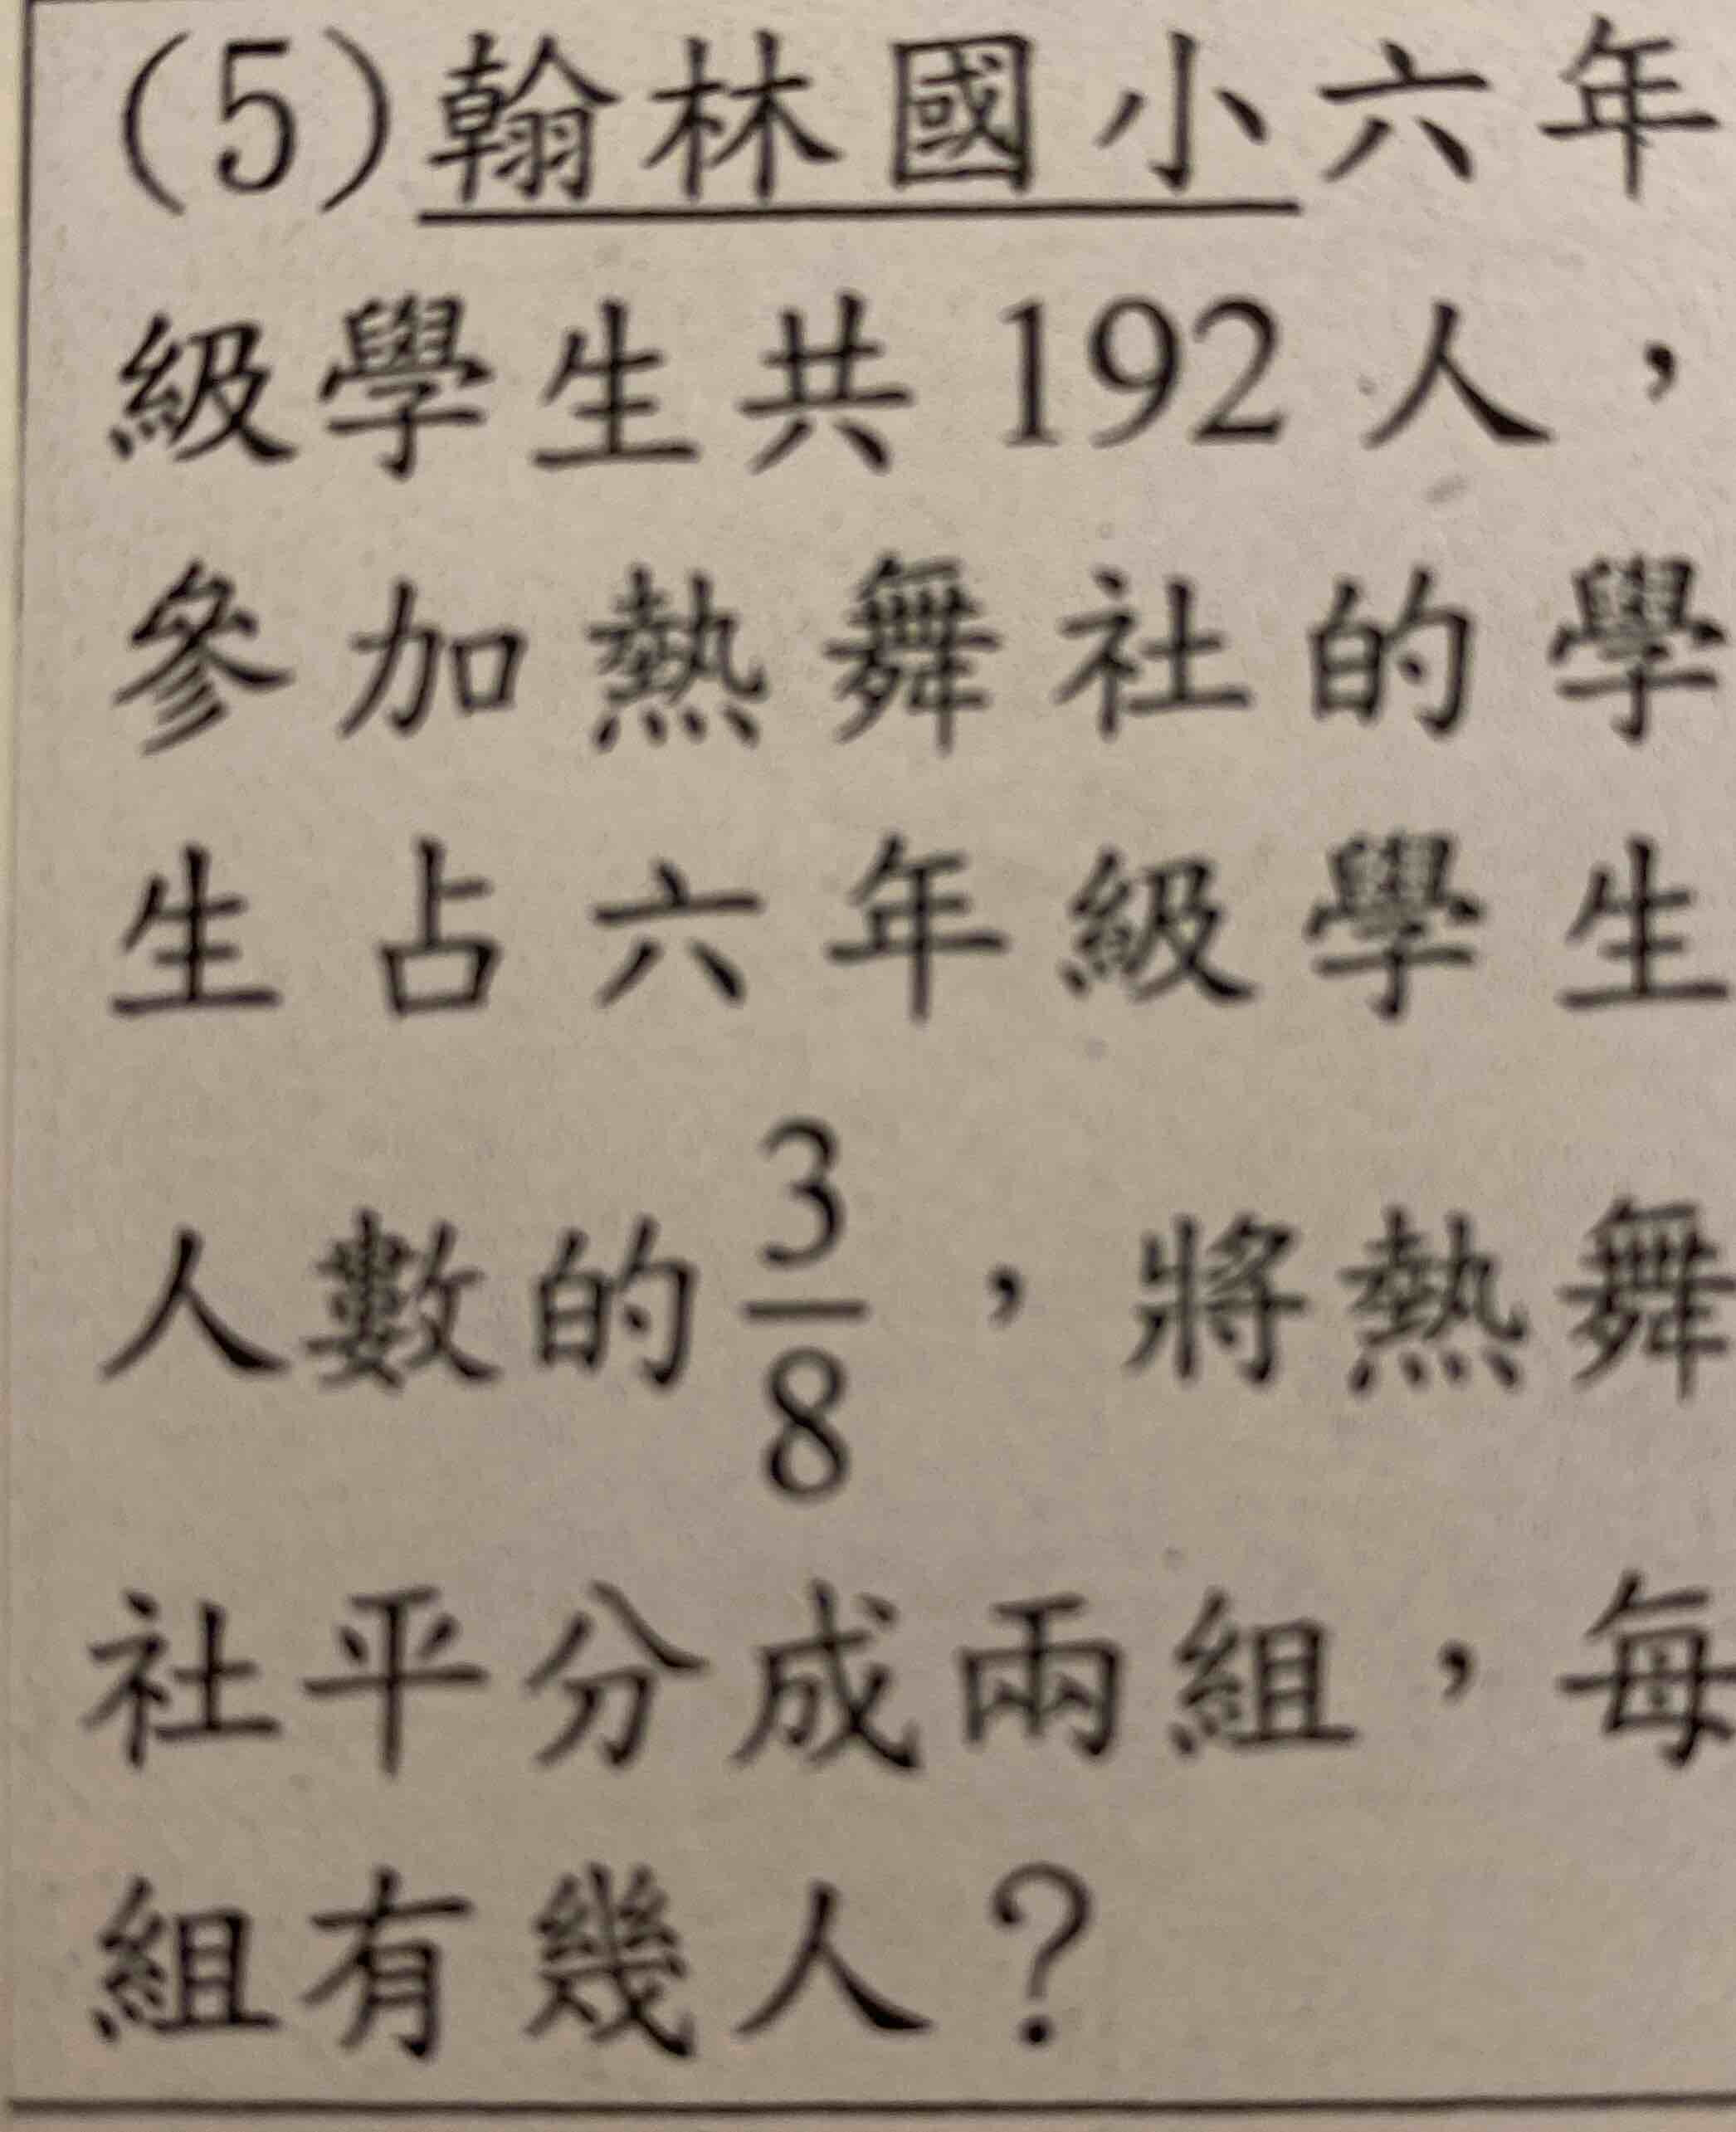 (5)翰林國小六年
級學生共192人，
參加熱舞社的學
生占六年級學生
人數的3/8，將熱舞
社平分成兩組，每
組有幾人？